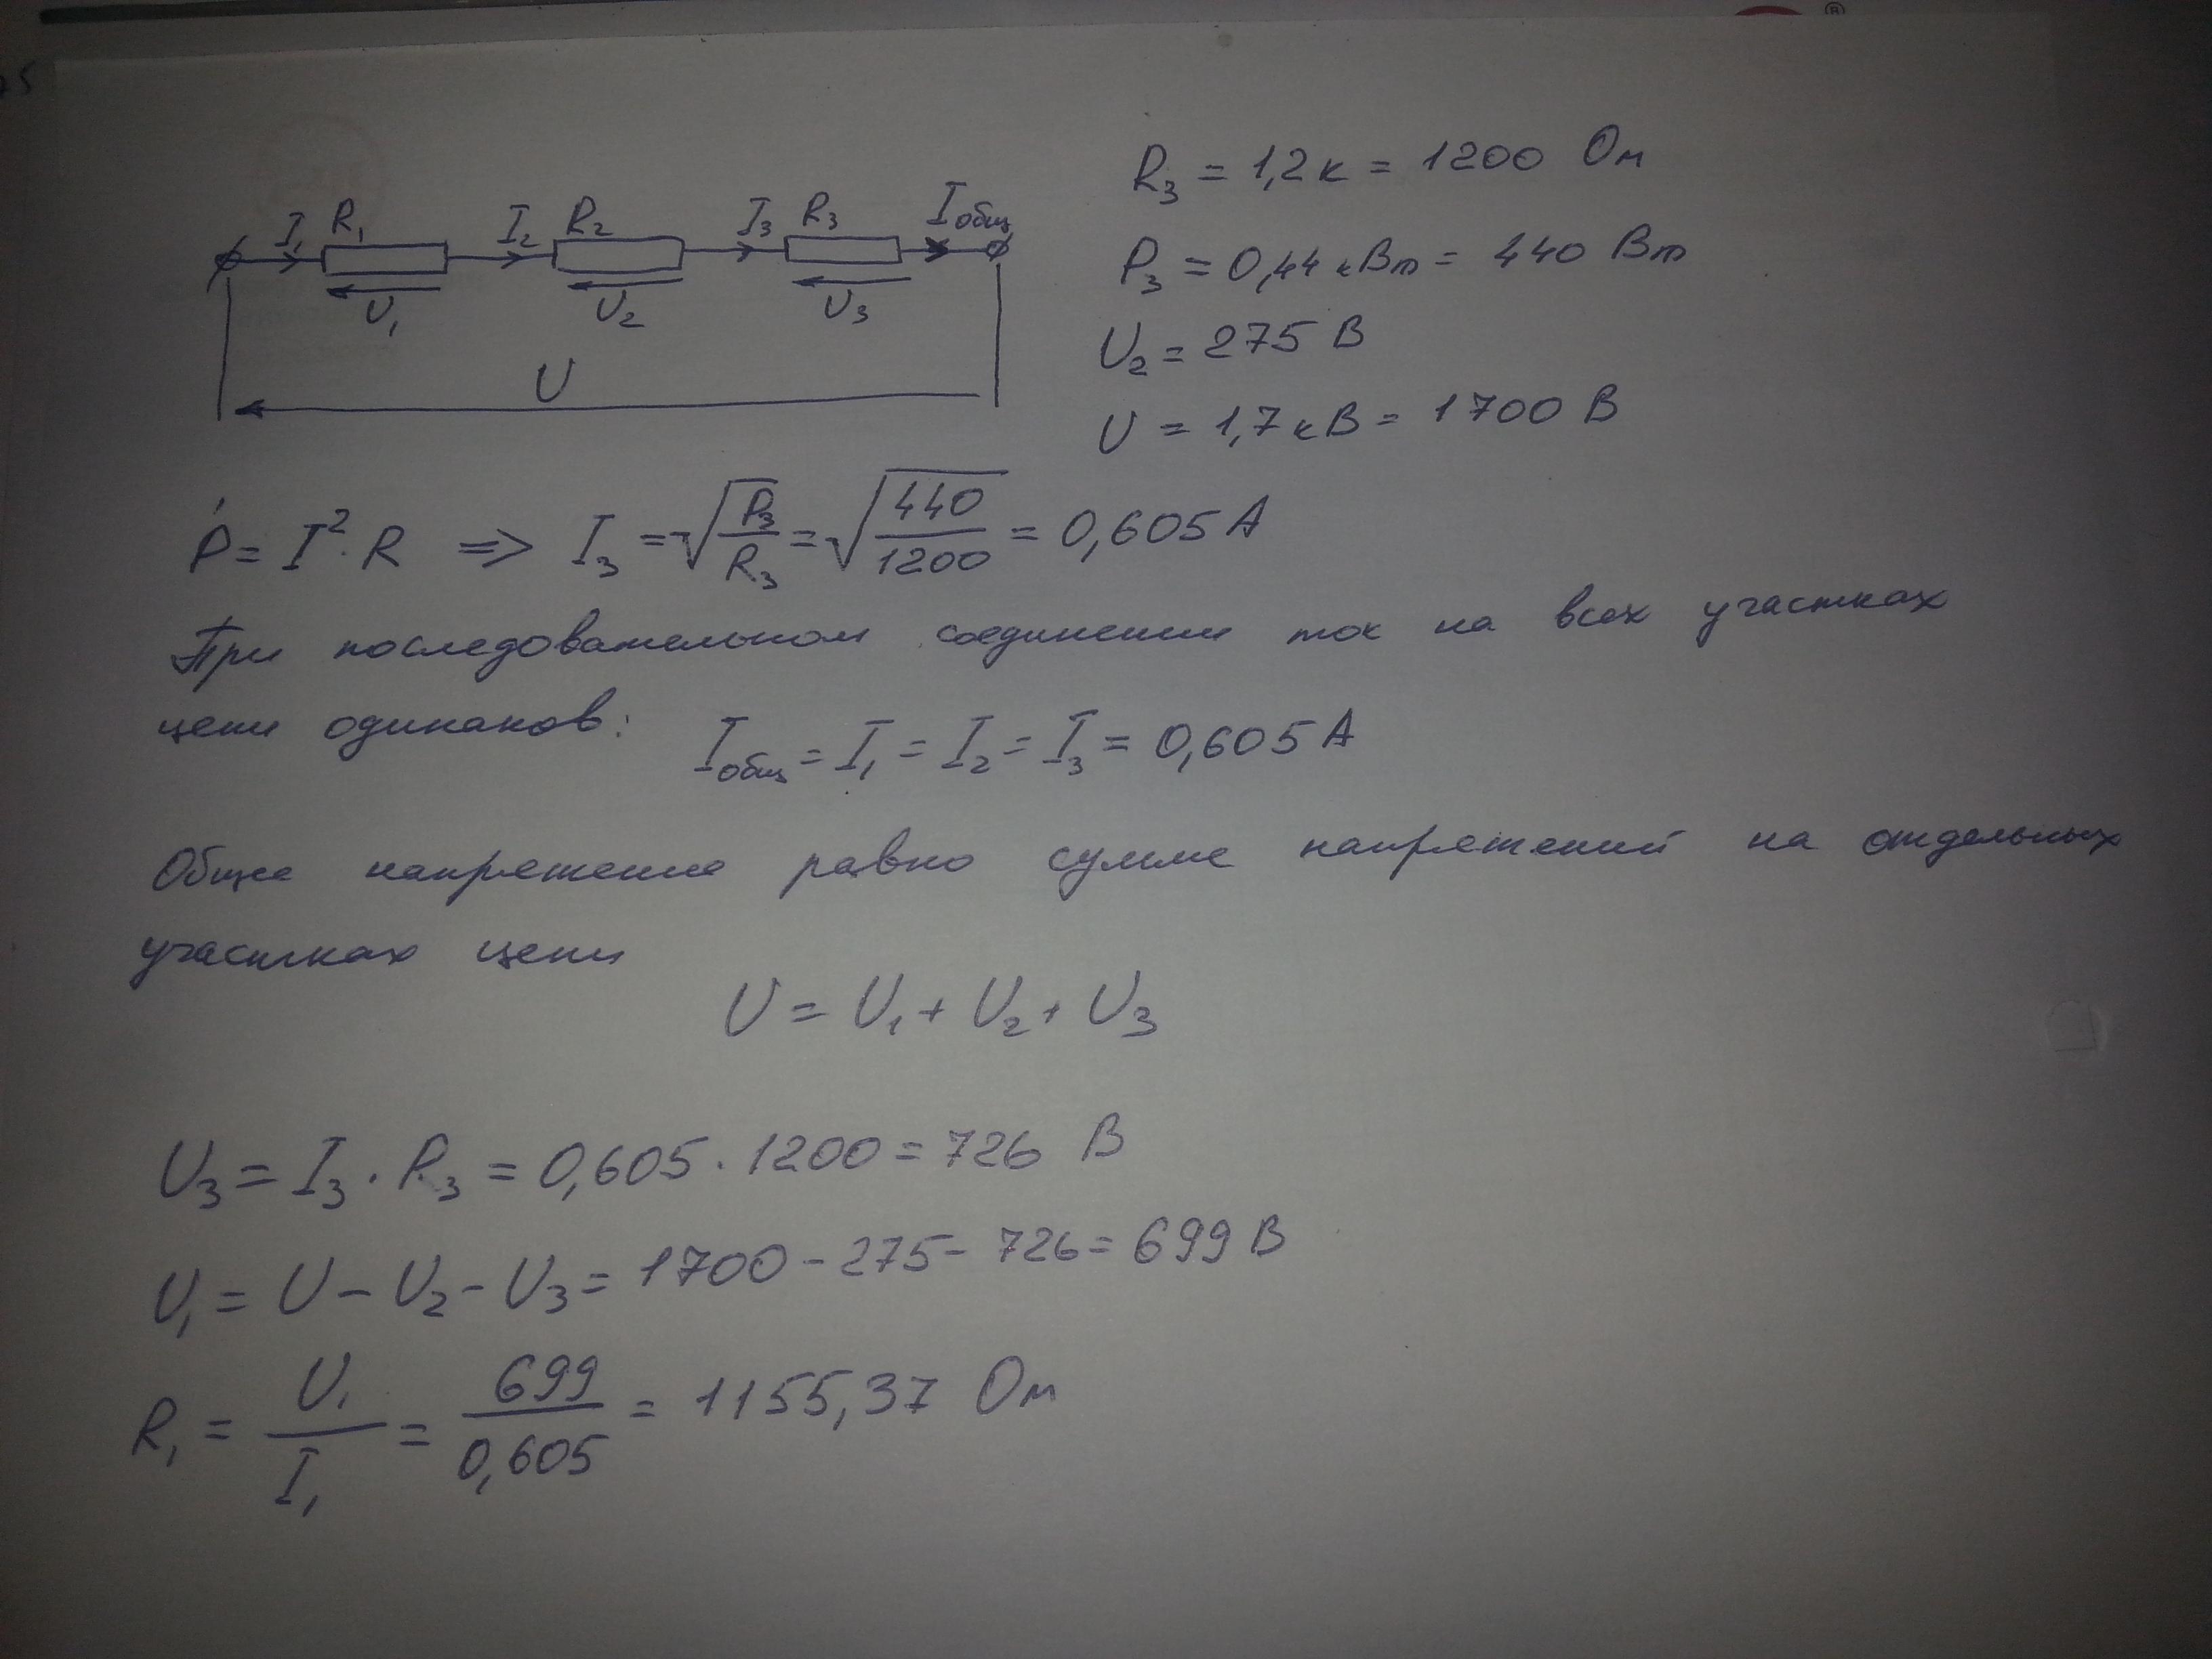 I₁ R₁ I₂ R₂ I₃ R₃ Iобщ
U₁ U₂ U₃
U
R₃ = 1,2к = 1200 Ом
P₃ = 0,44 кВт = 440 Вт
U₂ = 275 В
U = 1,7 кВ = 1700 В
P = I²·R => I₃ = √(P₃/R₃) = √(440/1200) = 0,605 А
При последовательном соединении ток на всех участках
цепи одинаков:
Iобщ = I₁ = I₂ = I₃ = 0,605 А
Общее напряжение равно сумме напряжений на отдельных
участках цепи
U = U₁ + U₂ + U₃
U₃ = I₃ · R₃ = 0,605 · 1200 = 726 В
U₁ = U − U₂ − U₃ = 1700 − 275 − 726 = 699 В
R₁ = U₁/I₁ = 699/0,605 = 1155,37 Ом